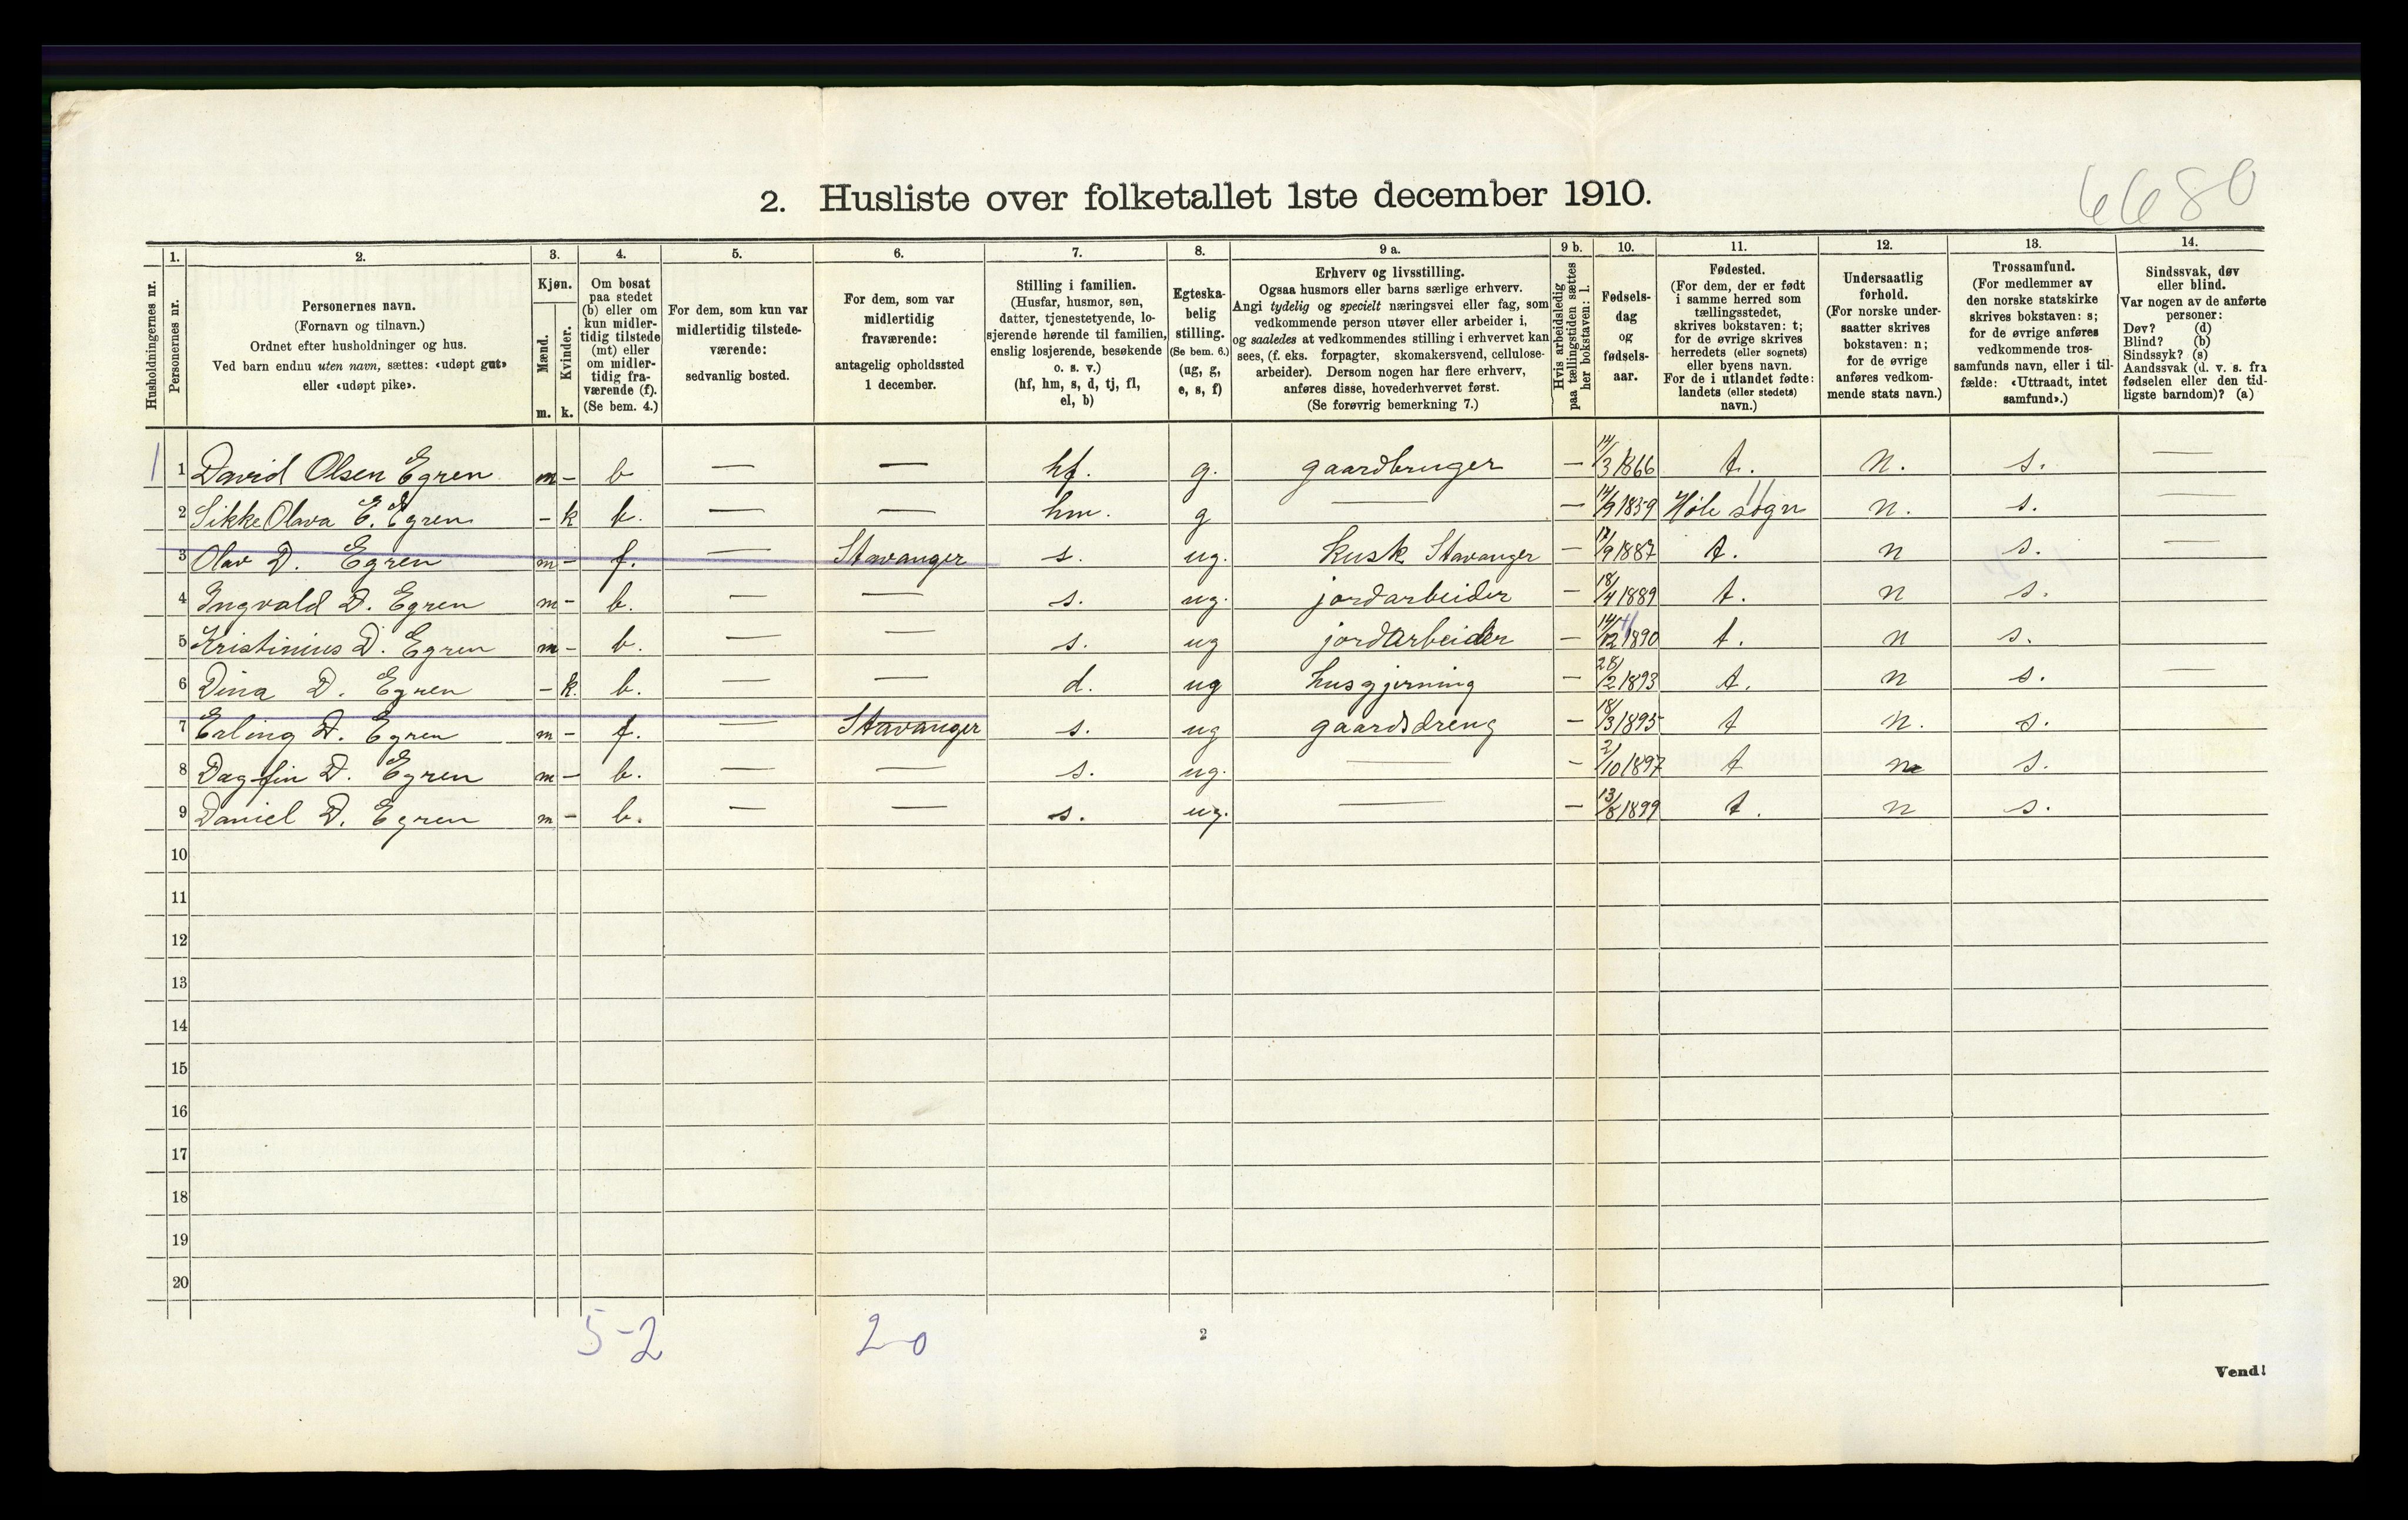 6680
2. Husliste over folketallet 1ste december 1910.
1. 2. 3. 4. 5. 6. 7. 8. 9 a. 9 b. 10. 11. 12. 13. 14.
Husholdningernes nr.
Personernes nr.
Personernes navn.
(Fornavn og tilnavn.)
Ordnet efter husholdninger og hus.
Ved barn endnu uten navn, sættes: «udøpt gut»
eller «udøpt pike».
Kjøn.
Mænd.
Kvinder.
m. k.
Om bosat
paa stedet
(b) eller om
kun midler-
tidig tilstede
(mt) eller
om midler-
tidig fra-
værende (f).
(Se bem. 4.)
For dem, som kun var
midlertidig tilstede-
værende:
sedvanlig bosted.
For dem, som var
midlertidig
fraværende:
antagelig opholdssted
1 december.
Stilling i familien.
(Husfar, husmor, søn,
datter, tjenestetyende, lo-
sjerende hørende til familien,
enslig losjerende, besøkende
o. s. v.)
(hf, hm, s, d, tj, fl,
el, b)
Egteska-
belig
stilling.
(Se bem. 6.)
(ug, g,
e, s, f)
Erhverv og livsstilling.
Ogsaa husmors eller barns særlige erhverv.
Angi tydelig og specielt næringsvei eller fag, som
vedkommende person utøver eller arbeider i,
og saaledes at vedkommendes stilling i erhvervet kan
sees, (f. eks. forpagter, skomakersvend, cellulose-
arbeider). Dersom nogen har flere erhverv,
anføres disse, hovederhvervet først.
(Se forøvrig bemerkning 7.)
Hvis arbeidsledig
paa tællingstiden sættes
her bokstaven: l.
Fødsels-
dag
og
fødsels-
aar.
Fødested.
(For dem, der er født
i samme herred som
tællingsstedet,
skrives bokstaven: t;
for de øvrige skrives
herredets (eller sognets)
eller byens navn.
For de i utlandet fødte:
landets (eller stedets)
navn.)
Undersaatlig
forhold.
(For norske under-
saatter skrives
bokstaven: n;
for de øvrige
anføres vedkom-
mende stats navn.)
Trossamfund.
(For medlemmer av
den norske statskirke
skrives bokstaven: s;
for de øvrige anføres
vedkommende tros-
samfunds navn, eller i til-
fælde: «Uttraadt, intet
samfund».)
Sindssvak, døv
eller blind.
Var nogen av de anførte
personer:
Døv? (d)
Blind? (b)
Sindssyk? (s)
Aandssvak (d. v. s. fra
fødselen eller den tid-
ligste barndom)? (a)
1 1 David Olsen Egren m - b — — hf. g. gaardbruger — 14/3 1866 t. n. s. —
2 Sikke Olava E. Egren - k b. — — hm. g — — 14/9 1859 Høle sogn n. s. —
3 Olav D. Egren m - f. — Stavanger s. ug. kusk Stavanger — 17/9 1887 t. n s. —
4 Ingvald D. Egren m - b. — — s. ug. jordarbeider — 18/4 1889 t. n s.
5 Kristinius D. Egren m - b. — — s. ug jordarbeider — 14/12 1890 t. n s.
6 Dina D. Egren - k. b. — — d. ug husgjerning — 28/2 1893 t. n s. —
7 Erling D. Egren m - f. — Stavanger s. ug gaardsdreng — 18/3 1895 t n. s.
8 Dagfin D. Egren m - b. — — s. ug. — — 2/10 1897 t n s.
9 Daniel D. Egren m - b. — — s. ug. — — 13/8 1899 t. n s.
10
11
12
13
14
15
16
17
18
19
20
5-2 2-0
2
Vend!